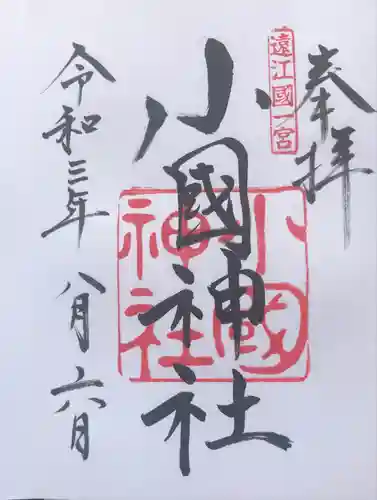 奉拝
遠江國一宮
小國神社
小國神社
令和三年 八月六月